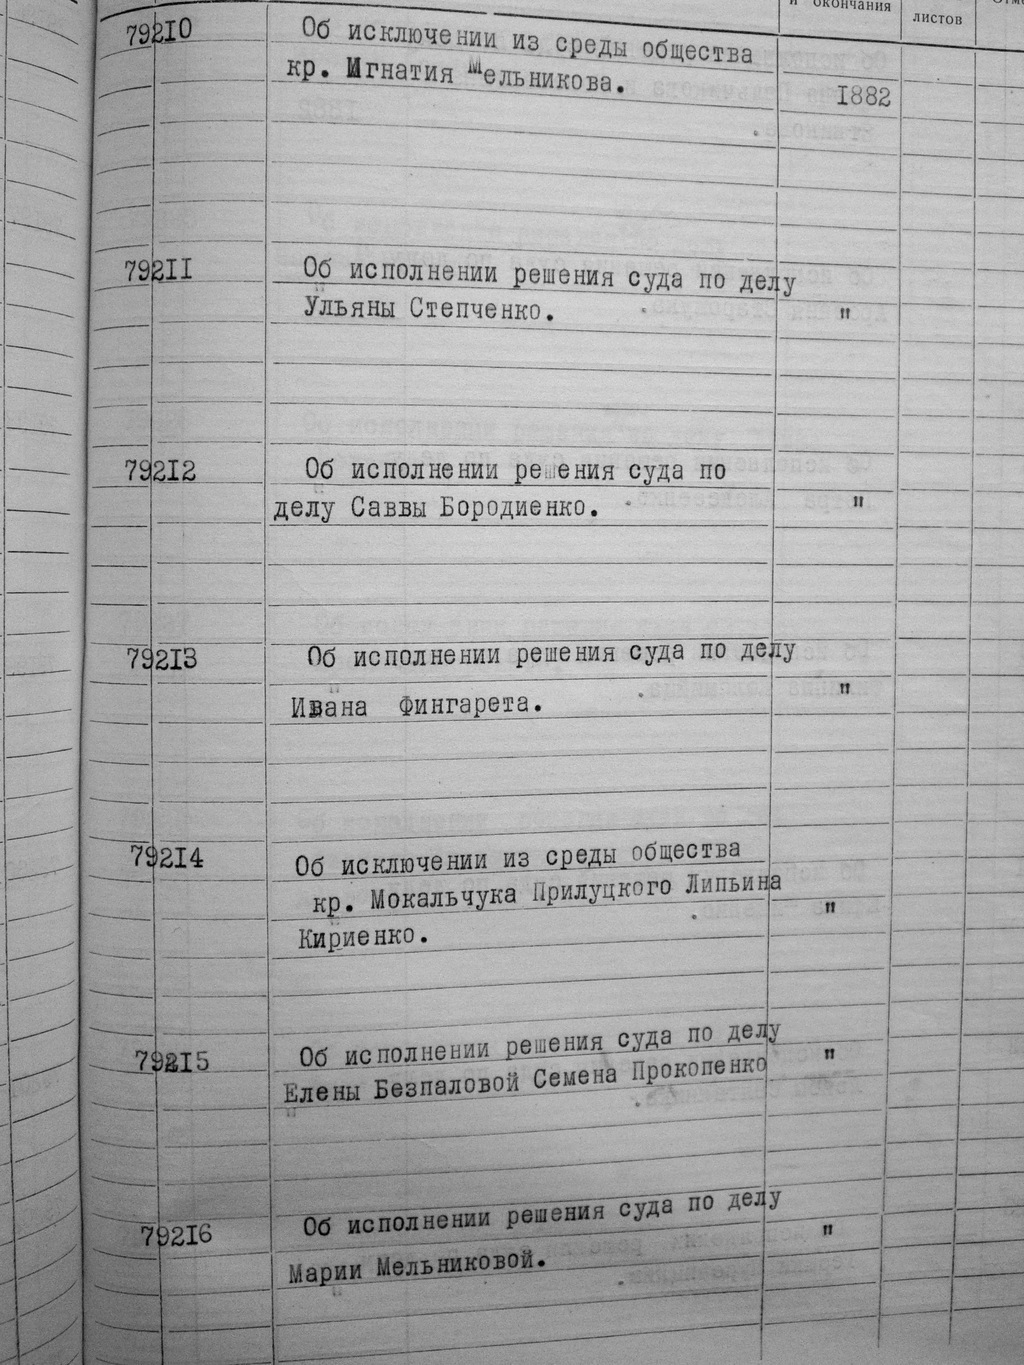 и окончания
листов
79210 Об исключении из среды общества
кр. Игнатия Мельникова.
1882
79211 Об исполнении решения суда по делу
Ульяны Степченко. "
79212 Об исполнении решения суда по
делу Саввы Бородиенко. "
79213 Об исполнении решения суда по делу
Ивана Фингарета. "
79214 Об исключении из среды общества
кр. Мокальчука Прилуцкого Липьина
Кириенко. "
79215 Об исполнении решения суда по делу "
Елены Безпаловой Семена Прокопенко
79216 Об исполнении решения суда по делу "
Марии Мельниковой.